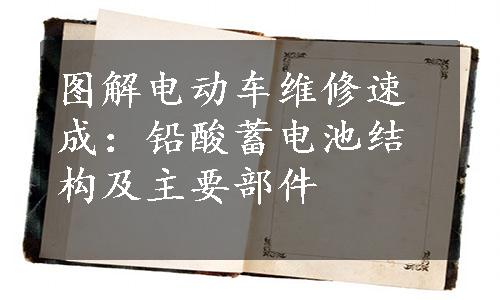 图解电动车维修速
成：铅酸蓄电池结
构及主要部件